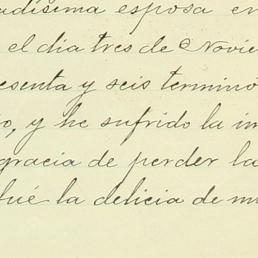 adísima esposa en
el dia tres de Novie
esenta y seis terminó
o, y he sufrido la in
gracia de perder la
fué la delicia de mi